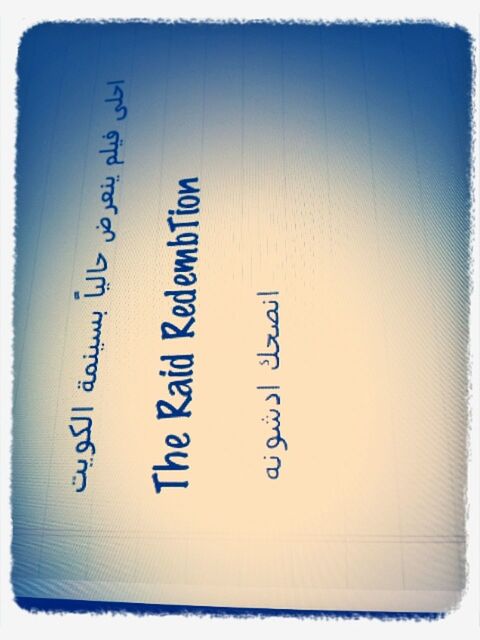 احلى فيلم ينعرض حالياً بسينمة الكويت
The Raid RedembTion
انصحك ادشونه